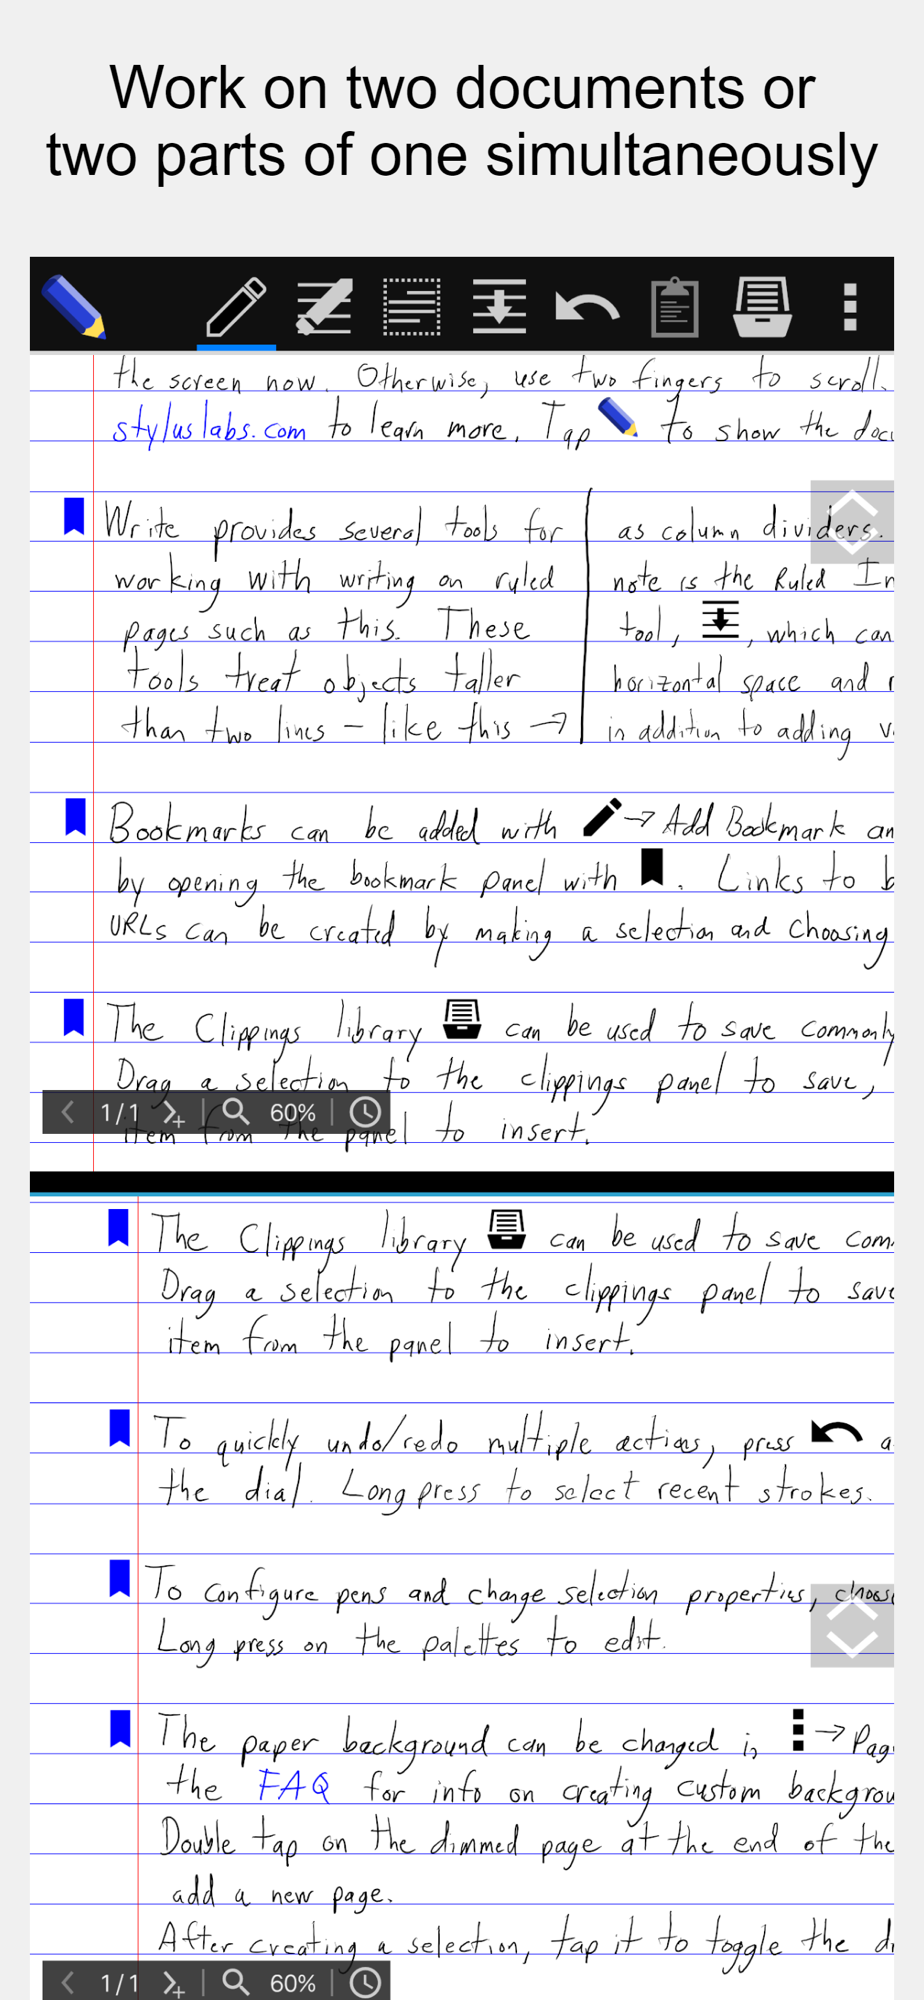 Work on two documents or
two parts of one simultaneously
the screen now. Otherwise, use two fingers to scroll.
styluslabs.com to learn more. Tap to show the docu
Write provides several tools for
working with writing on ruled
pages such as this. These
tools treat objects taller
than two lines – like this →
as column dividers.
note is the Ruled In
tool, , which can
horizontal space and r
in addition to adding v
Bookmarks can be added with → Add Bookmark an
by opening the bookmark panel with . Links to b
URLs can be created by making a selection and choosing
The Clippings library can be used to save commonly
Drag a selection to the clippings panel to save,
item from the panel to insert.
1/1 60%
The Clippings library can be used to save com
Drag a selection to the clippings panel to save
item from the panel to insert.
To quickly undo/redo multiple actions, press a
the dial. Long press to select recent strokes.
To configure pens and change selection properties, choose
Long press on the palettes to edit.
The paper background can be changed in → Pag
the FAQ for info on creating custom backgrou
Double tap on the dimmed page at the end of the
add a new page.
After creating a selection, tap it to toggle the di
1/1 60%